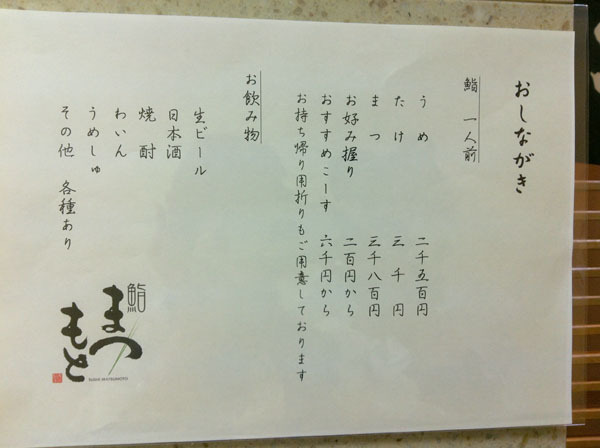 おしながき
鮨 一人前
うめ 二千五百円
たけ 三千円
まつ 三千八百円
お好み握り 二百円から
おすすめこーす 六千円から
お持ち帰り用折りもご用意しております
お飲み物
生ビール
日本酒
焼酎
わいん
うめしゅ
その他 各種あり
鮨
まつ
もと
SUSHI MATSUMOTO